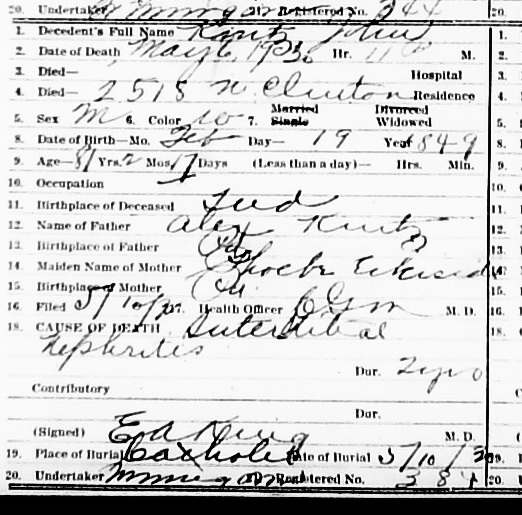 20. Undertaker Registered No. 344
1. Decedent's Full Name Kintz John
2. Date of Death May 6, 1930 Hr. 11 M.
3. Died— Hospital
4. Died— 2518 N Clinton Residence
5. Sex M 6. Color W 7. Married Single Divorced Widowed
8. Date of Birth—Mo. Feb Day— 19 Year 1849
9. Age—81 Yrs. 2 Mos. 17 Days (Less than a day)— Hrs. Min.
10. Occupation
11. Birthplace of Deceased Ind
12. Name of Father Alex Kintz
13. Birthplace of Father
14. Maiden Name of Mother
15. Birthplace of Mother
16. Filed 5/10/30 17. Health Officer M. D.
18. CAUSE OF DEATH Interstitial
Nephritis
Dur. 2 yrs
Contributory
Dur.
(Signed) E A King M. D.
19. Place of Burial Catholic Date of Burial 5/10/30
20. Undertaker Registered No. 384